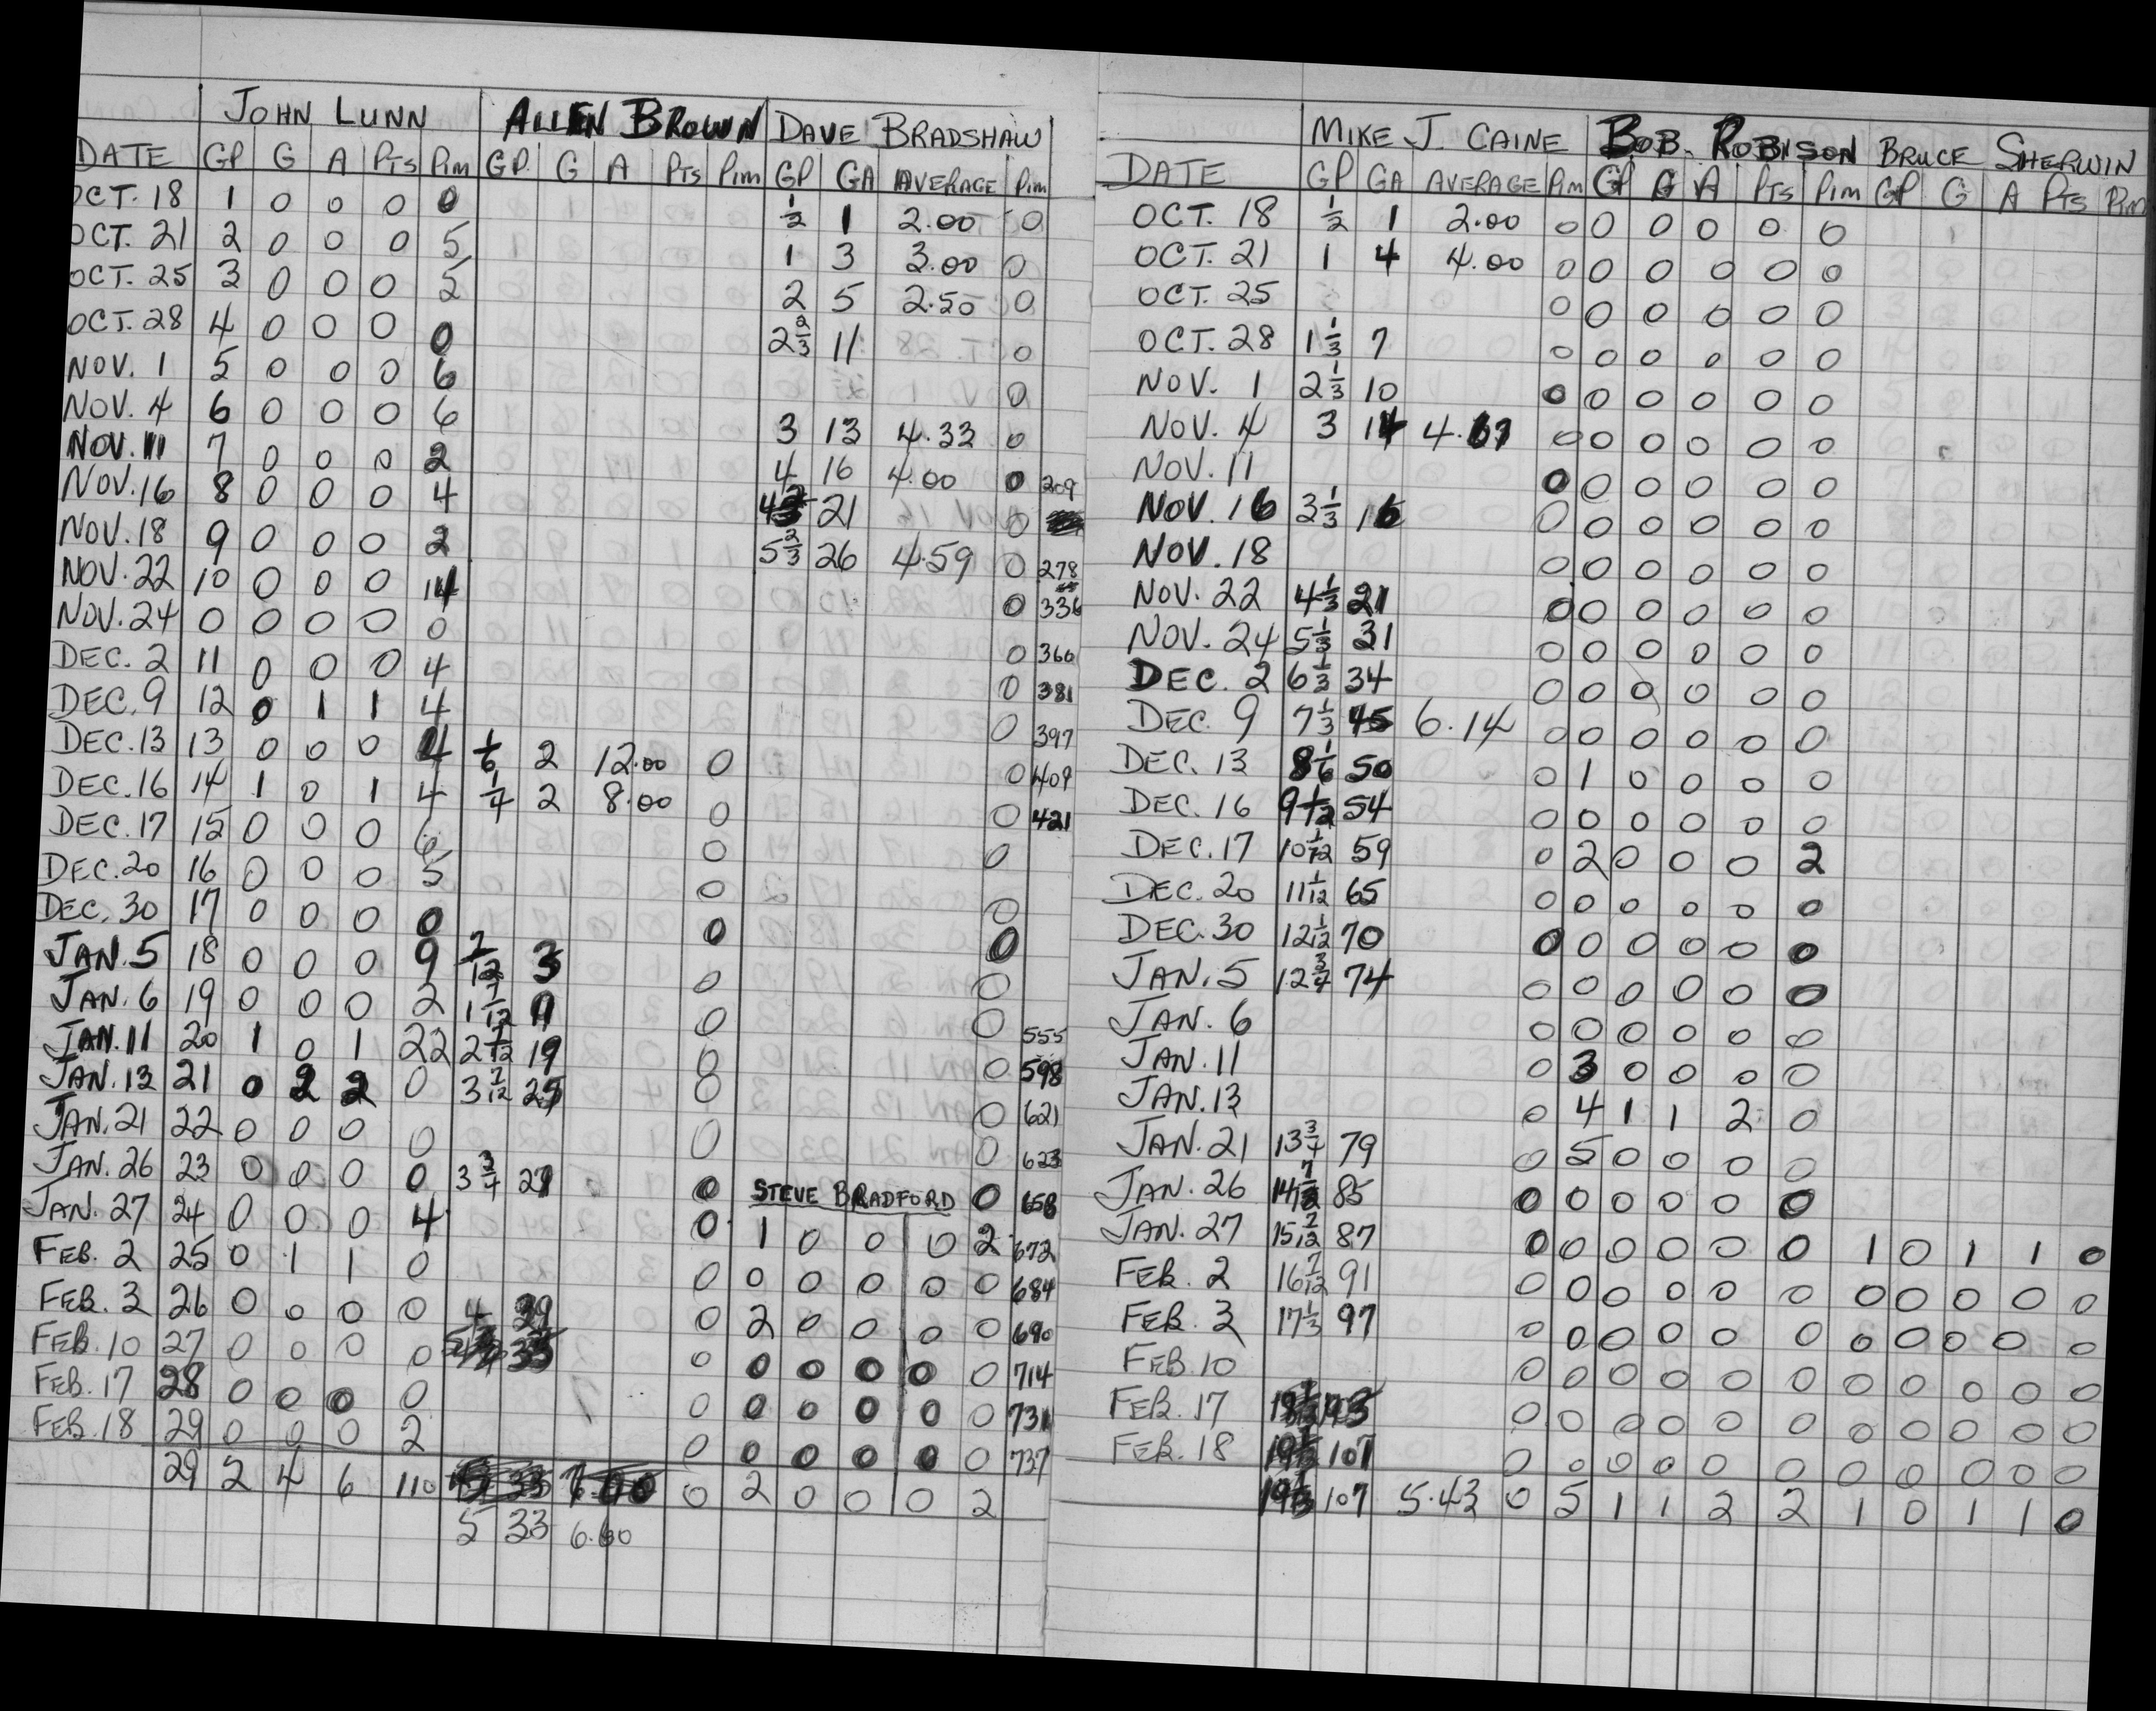 JOHN LUNN ALLEN BROWN DAVE BRADSHAW
DATE GP G A PTS Pim GP. G A PTS Pim GP GA AVERAGE Pim
OCT. 18 1 0 0 0 0 1/2 1 2.00 0
OCT. 21 2 0 0 0 5 1 3 3.00 0
OCT. 25 3 0 0 0 2 5 2.50 0
OCT. 28 4 0 0 0 0 2 2/3 11 0
NOV. 1 5 0 0 0 6 0
NOV. 4 6 0 0 0 6 3 13 4.33 0
NOV. 11 7 0 0 0 2 4 16 4.00 0 209
NOV. 16 8 0 0 0 4 21 0
NOV. 18 9 0 0 0 2 5 2/3 26 4.59 0 278
NOV. 22 10 0 0 0 14 0 336
NOV. 24 0 0 0 0 0 0 360
DEC. 2 11 0 0 0 4 0 381
DEC. 9 12 0 1 1 4 0 397
DEC. 13 13 0 0 0 4 1/6 2 12.00 0 0 409
DEC. 16 14 1 0 1 4 1/4 2 8.00 0 0 421
DEC. 17 15 0 0 0 6 0 0
DEC. 20 16 0 0 0 5 0 0
DEC. 30 17 0 0 0 0 0 0
JAN. 5 18 0 0 0 9 7/12 3 0 0
JAN. 6 19 0 0 0 2 1 7/12 11 0 0 555
JAN. 11 20 1 0 1 22 2 7/12 19 0 0 598
JAN. 13 21 0 2 2 0 3 7/12 25 0 0 621
JAN. 21 22 0 0 0 0 0 0 623
JAN. 26 23 0 0 0 0 3 3/4 27 0 STEVE BRADFORD 0 658
JAN. 27 24 0 0 0 4 0 1 0 0 0 2 672
FEB. 2 25 0 1 1 0 0 0 0 0 0 0 684
FEB. 3 26 0 0 0 0 4 29 0 2 0 0 0 0 690
FEB. 10 27 0 0 0 0 0 0 0 0 0 0 714
FEB. 17 28 0 0 0 0 0 0 0 0 0 0 731
FEB. 18 29 0 0 0 2 0 0 0 0 0 0 737
29 2 4 6 110 0 2 0 0 0 2
5 33 6.60
MIKE J. CAINE BOB. ROBISON BRUCE SHERWIN
DATE GP GA AVERAGE Pim GP G A PTS Pim GP G A PTS Pim
OCT. 18 1/2 1 2.00 0 0 0 0 0 0
OCT. 21 1 4 4.00 0 0 0 0 0 0
OCT. 25 0 0 0 0 0 0
OCT. 28 1 1/3 7 0 0 0 0 0 0
NOV. 1 2 1/3 10 0 0 0 0 0 0
NOV. 4 3 14 4.67 0 0 0 0 0 0
NOV. 11 0 0 0 0 0 0
NOV. 16 3 1/3 16 0 0 0 0 0 0
NOV. 18 0 0 0 0 0 0
NOV. 22 4 1/3 21 0 0 0 0 0 0
NOV. 24 5 1/3 31 0 0 0 0 0 0
DEC. 2 6 1/3 34 0 0 0 0 0 0
DEC. 9 7 1/3 45 6.14 0 0 0 0 0 0
DEC. 13 8 1/6 50 0 1 0 0 0 0
DEC. 16 9 1/12 54 0 0 0 0 0 0
DEC. 17 10 1/12 59 0 2 0 0 0 2
DEC. 20 11 1/12 65 0 0 0 0 0 0
DEC. 30 12 1/12 70 0 0 0 0 0 0
JAN. 5 12 3/4 74 0 0 0 0 0 0
JAN. 6 0 0 0 0 0 0
JAN. 11 0 3 0 0 0 0
JAN. 13 0 4 1 1 2 0
JAN. 21 13 3/4 79 0 5 0 0 0 0
JAN. 26 85 0 0 0 0 0 0
JAN. 27 15 7/12 87 0 0 0 0 0 0 1 0 1 1 0
FEB. 2 16 7/12 91 0 0 0 0 0 0 0 0 0 0 0
FEB. 3 17 1/3 97 0 0 0 0 0 0 0 0 0 0 0
FEB. 10 0 0 0 0 0 0 0 0 0 0 0
FEB. 17 0 0 0 0 0 0 0 0 0 0 0
FEB. 18 107 0 0 0 0 0 0 0 0 0 0 0
107 5.43 0 5 1 1 2 2 1 0 1 1 0